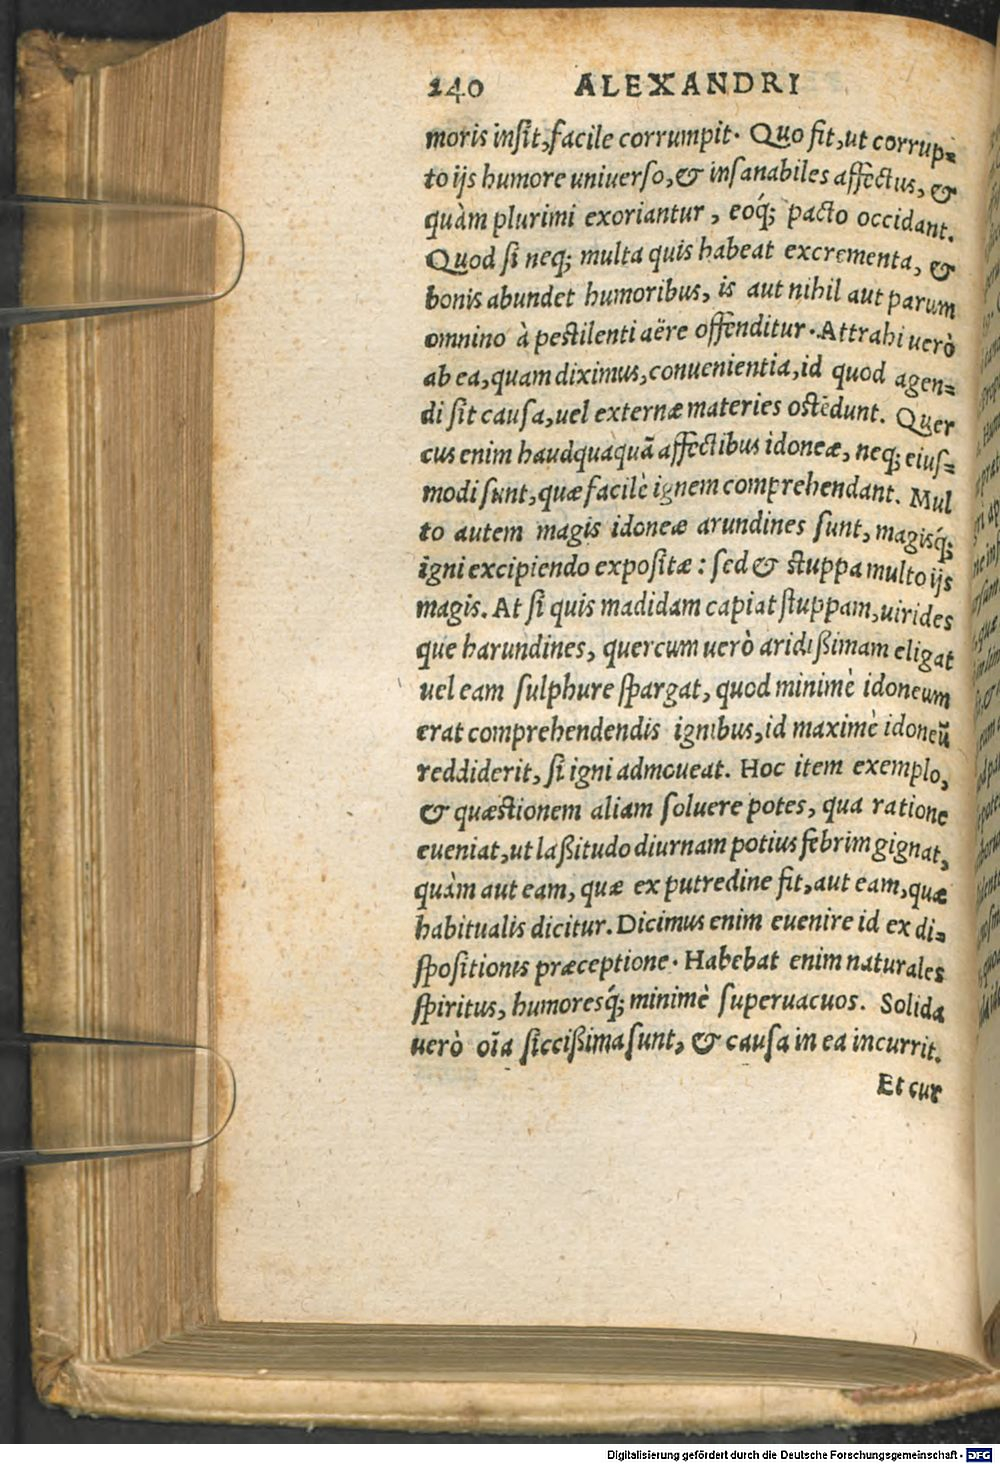 240 ALEXANDRI
moris insit, facile corrumpit. Quo fit, ut corrup=
to ijs humore uniuerso, & insanabiles affectus, &
quàm plurimi exoriantur, eoq́; pacto occidant.
Quod si neq; multa quis habeat excrementa, &
bonis abundet humoribus, is aut nihil aut parum
omnino à pestilenti aëre offenditur. Attrahi uerò
ab ea, quam diximus, conuenientia, id quod agen=
di sit causa, uel externæ materies ostēdunt. Quer
cus enim haudquaquā affectibus idoneæ, neq; eius=
modi sunt, quæ facilè ignem comprehendant. Mul
to autem magis idoneæ arundines sunt, magisq́;
igni excipiendo expositæ: sed & stuppa multo ijs
magis. At si quis madidam capiat stuppam, uirides
que harundines, quercum uerò aridißimam eligat
uel eam sulphure spargat, quod minimè idoneum
erat comprehendendis ignibus, id maximè idoneū
reddiderit, si igni admoueat. Hoc item exemplo,
& quæstionem aliam soluere potes, qua ratione
eueniat, ut laßitudo diurnam potius febrim gignat,
quàm aut eam, quæ ex putredine fit, aut eam, quæ
habitualis dicitur. Dicimus enim euenire id ex di=
spositionis præceptione. Habebat enim naturales
spiritus, humoresq́; minimè superuacuos. Solida
uerò oīa siccißima sunt, & causa in ea incurrit.
Et cur
Digitalisierung gefördert durch die Deutsche Forschungsgemeinschaft - DFG